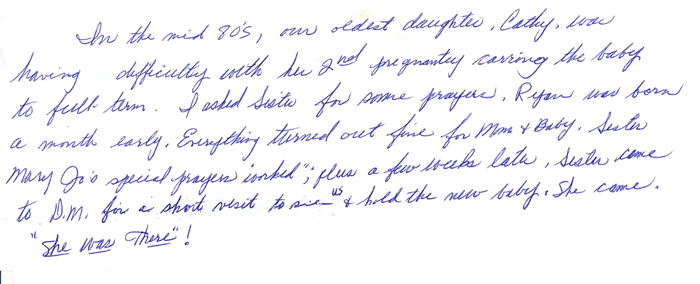 In the mid 80's, our oldest daughter, Cathy, was
having difficulty with her 2nd pregnantcy carring the baby
to full term. I asked Sister for some prayers. Ryan was born
a month early. Everything turned out fine for Mom & Baby. Sister
Mary Jo's special prayers "worked"; plus a few weeks later, Sister came
to D.M. for a short visit to see us & hold the new baby. She came.
"She Was There"!